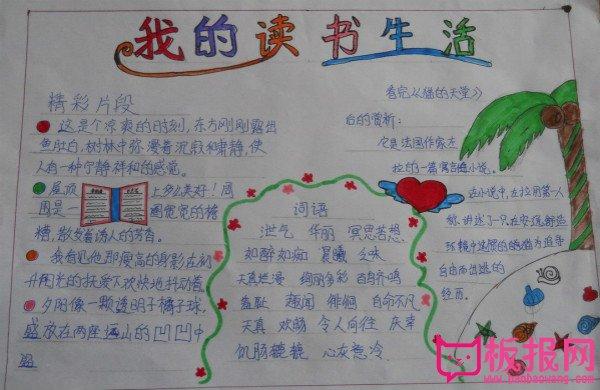 我的读书生活
精彩片段
这是个凉爽的时刻,东方刚刚露出
鱼肚白,树林中弥漫着沉寂和肃静,使
人有一种宁静祥和的感觉。
屋顶 上多么美好!周
围是一 圈宽宽的檐
糟,散发着诱人的芳香。
我看见他那瘦高的身影在初
升阳光的抚爱下欢快地抖动着
夕阳像一颗透明子橘子球,
盛放在两座远山的凹凹中
词语
洪气 华丽 冥思苦想
如醉如痴 晨曦 乏味
天真烂漫 绚丽多彩 百鸟齐鸣
羞耻 趣闻 徘徊 自命不凡
天真 欢萌 令人向往 庆幸
饥肠辘辘 心灰意冷
看完《猫的天堂》
后的赏析:
它是法国作家左
拉的一篇寓言体小说。
在小说中,左拉用第一人
称,讲述了一只在安逸舒适
环境中
自由而出逃的
经历。
板报网
www.banbaowang.com